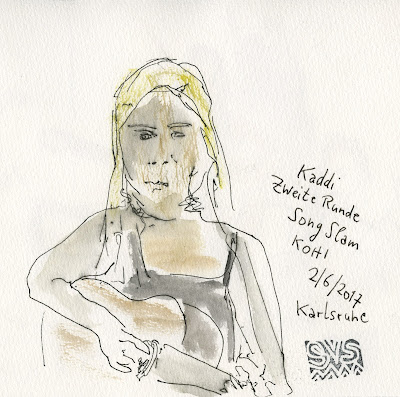 Kaddi
Zweite Runde
Song Slam
KOHI
2/6/2017
Karlsruhe